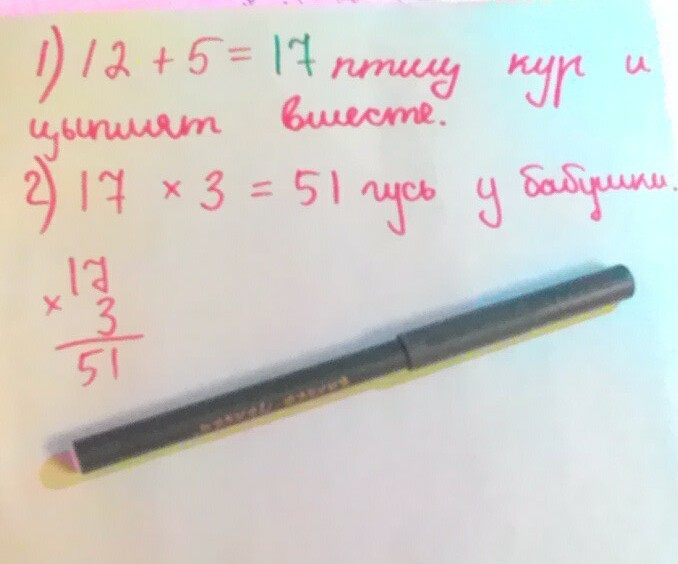 1) 12 + 5 = 17 птицу кур и
цыплят вместе.
2) 17 × 3 = 51 гусь у бабушки.
17
× 3
51